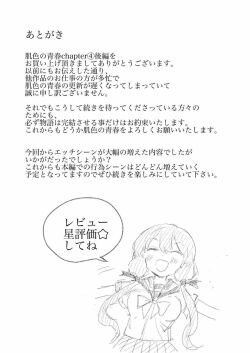 あとがき
肌色の青春chapter④後編を
お買い上げ頂きましてありがとうございます。
以前にもお伝えした通り、
他作品のお仕事の方が多忙で
肌色の青春の更新が遅くなってしまっていて
誠に申し訳ございません。
それでもこうして続きを待ってくださっている方々の
ためにも、
必ず物語は完結させる事だけはお約束いたします。
これからもどうか肌色の青春をよろしくお願いいたします。
今回からエッチシーンが大幅の増えた内容でしたが
いかがだったでしょうか？
これからも本編での行為シーンはどんどん増えていく
予定となってますのでぜひ続きを楽しみにしていて下さい。
レビュー
星評価☆
してね